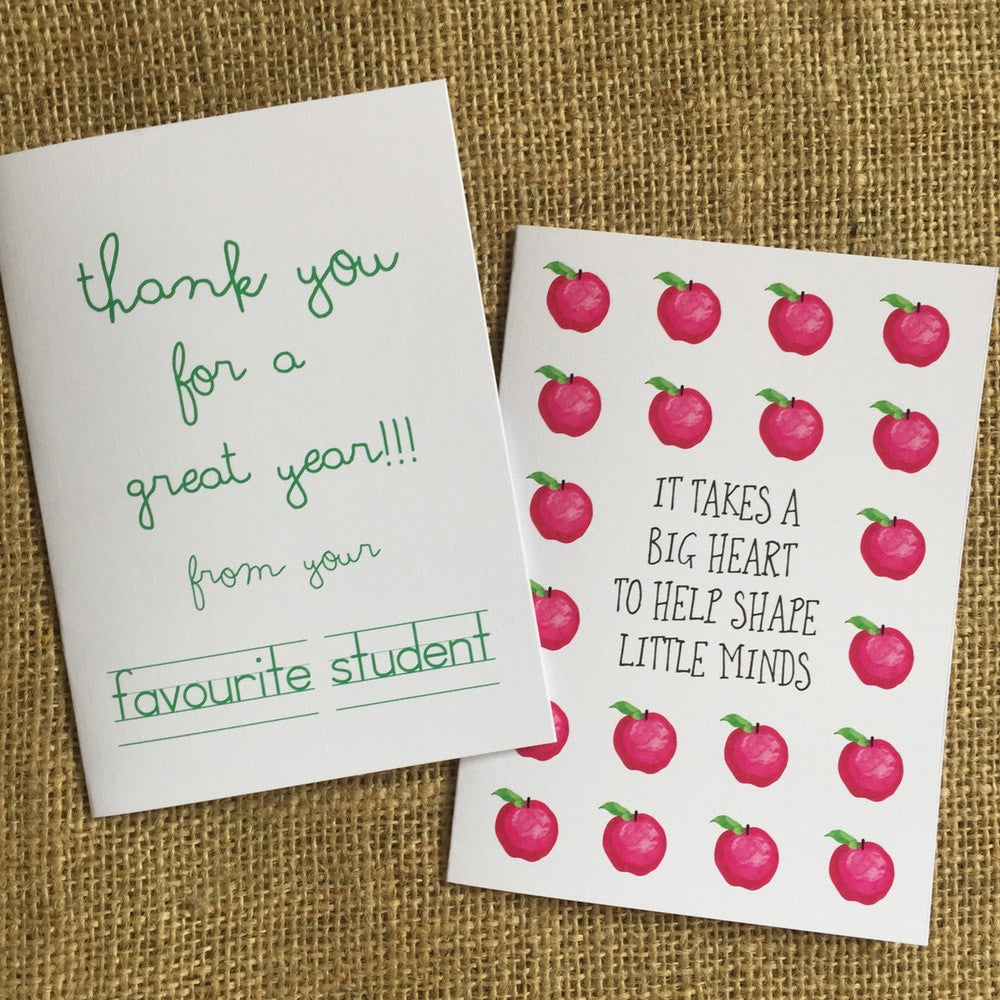 thank you
for a
great year!!!
from your
favourite student
IT TAKES A
BIG HEART
TO HELP SHAPE
LITTLE MINDS